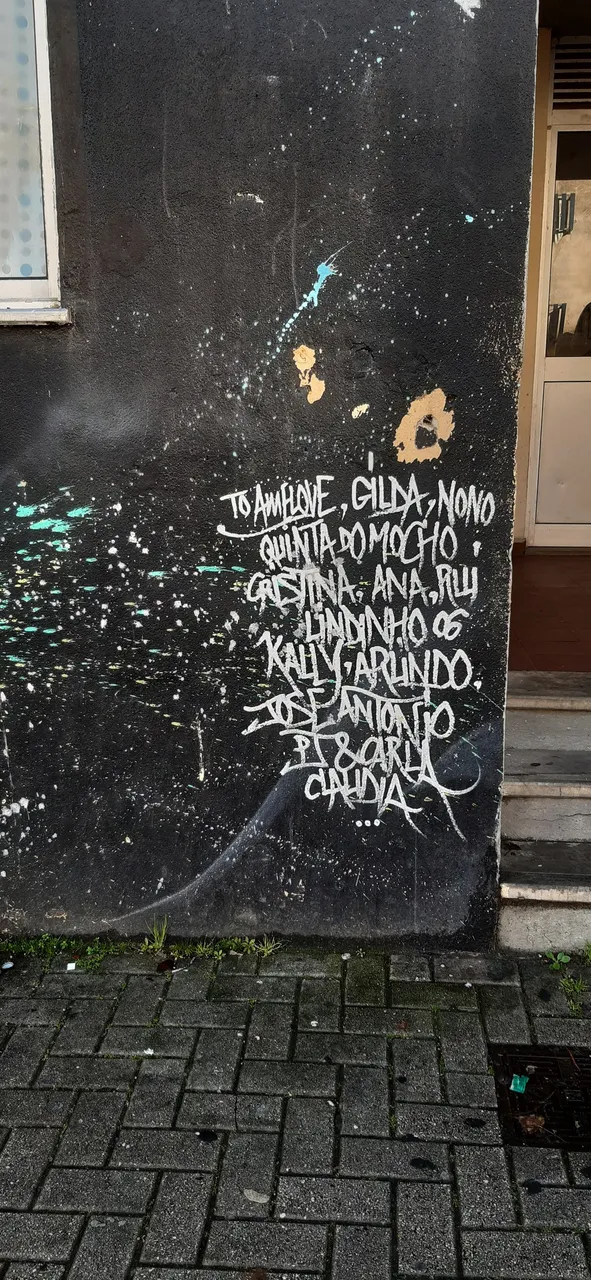 TO AMFLOVE, GILDA, NONO
QUINTA DO MOCHO.
CRISTINA, ANA, RUI
LINDINHO 06
KALLY, ARLINDO,
JOSÉ ANTONIO
PJ & CARLA
CLAUDIA
...